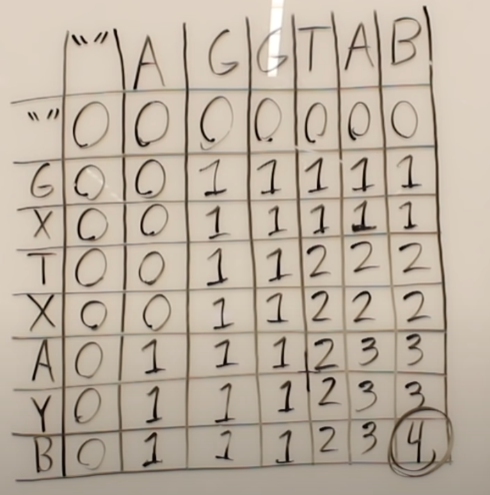 "" A G G T A B
"" 0 0 0 0 0 0 0
G 0 0 1 1 1 1 1
X 0 0 1 1 1 1 1
T 0 0 1 1 2 2 2
X 0 0 1 1 2 2 2
A 0 1 1 1 2 3 3
Y 0 1 1 1 2 3 3
B 0 1 1 1 2 3 4